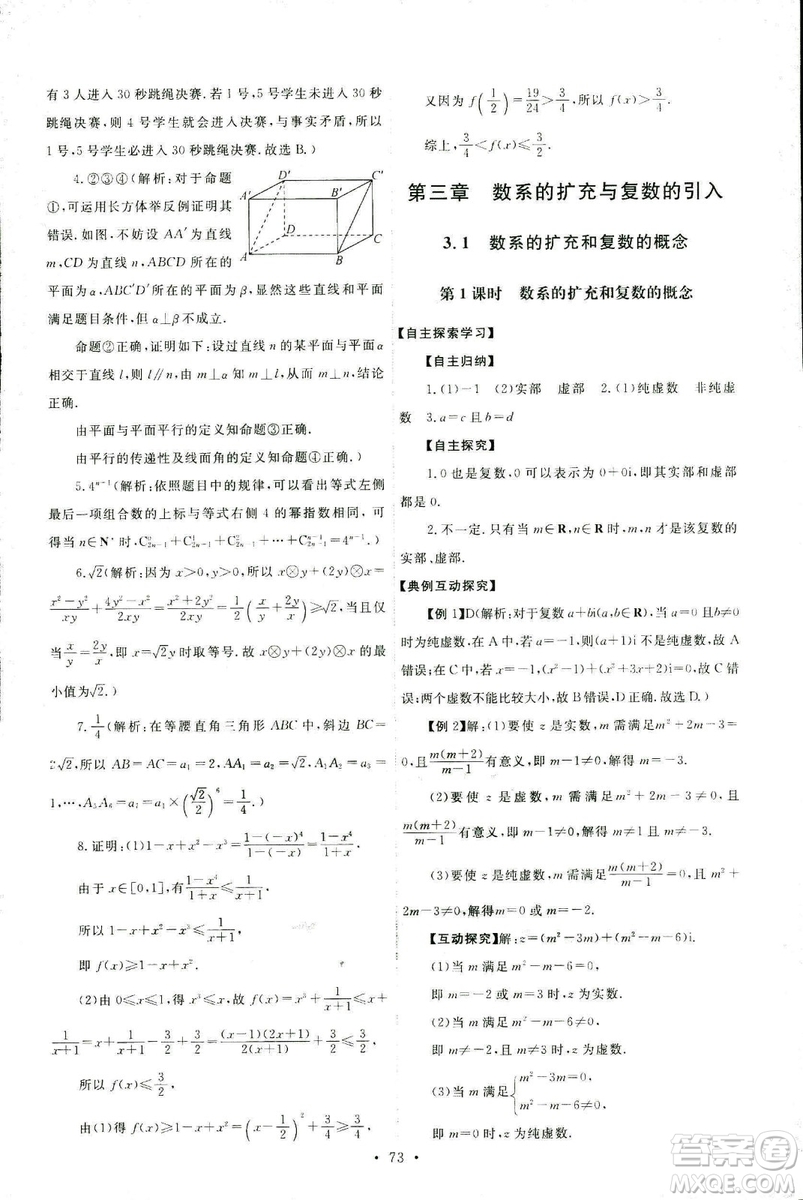 有 3 人进入 30 秒跳绳决赛.若 1 号,5 号学生未进入 30 秒
跳绳决赛,则 4 号学生就会进入决赛,与事实矛盾,所以
1 号,5 号学生必进入 30 秒跳绳决赛.故选 B.)
4.②③④(解析:对于命题
①可运用长方体举反例证明其
错误.如图,不妨设 AA′为直线
m,CD 为直线 n,ABCD 所在的
平面为 α,ABC′D′所在的平面为 β,显然这些直线和平面
满足题目条件,但 α⊥β 不成立.
D′ C′ A′ B′ D C A B
命题②正确,证明如下:设过直线 n 的某平面与平面 α
相交于直线 l,则 l∥n,由 m⊥α 知 m⊥l,从而 m⊥n,结论
正确.
由平面与平面平行的定义知命题③正确.
由平行的传递性及线面角的定义知命题④正确.)
5.4ⁿ⁻¹(解析:依照题目中的规律,可以看出等式左侧
最后一项组合数的上标与等式右侧 4 的幂指数相同,可得
当 n∈N* 时,C⁰₂ₙ₋₁+C¹₂ₙ₋₁+C²₂ₙ₋₁+⋯+Cⁿ⁻¹₂ₙ₋₁=4ⁿ⁻¹.)
6.√2(解析:因为 x>0,y>0,所以 x⊗y+(2y)⊗x=
(x²-y²)/(xy)+(4y²-x²)/(2xy)=(x²+2y²)/(2xy)=1/2(x/y+2y/x)≥√2,当且仅
当 x/y=2y/x,即 x=√2y 时取等号.故 x⊗y+(2y)⊗x 的最
小值为√2.)
7.1/4(解析:在等腰直角三角形 ABC 中,斜边 BC=
2√2,所以 AB=AC=a₁=2,AA₁=a₂=√2,A₁A₂=a₃=
1,⋯,A₅A₆=a₇=a₁×(√2/2)⁶=1/4.)
8.证明:(1)1-x+x²-x³=(1-(-x)⁴)/(1-(-x))=(1-x⁴)/(1+x).
由于 x∈[0,1],有(1-x⁴)/(1+x)≤1/(x+1),
所以 1-x+x²-x³≤1/(x+1),
即 f(x)≥1-x+x².
(2)由 0≤x≤1,得 x³≤x,故 f(x)=x³+1/(x+1)≤x+
1/(x+1)=x+1/(x+1)-3/2+3/2=((x-1)(2x+1))/(2(x+1))+3/2≤3/2,
所以 f(x)≤3/2,
由(1)得 f(x)≥1-x+x²=(x-1/2)²+3/4≥3/4,
又因为 f(1/2)=19/24>3/4,所以 f(x)>3/4.
综上,3/4<f(x)≤3/2.
第三章 数系的扩充与复数的引入
3.1 数系的扩充和复数的概念
第 1 课时 数系的扩充和复数的概念
【自主探索学习】
【自主归纳】
1.(1)-1 (2)实部 虚部 2.(1)纯虚数 非纯虚
数 3.a=c 且 b=d
【自主探究】
1.0 也是复数,0 可以表示为 0+0i,即其实部和虚部
都是 0.
2.不一定.只有当 m∈R,n∈R 时,m,n 才是该复数的
实部、虚部.
【典例互动探究】
【例 1】D(解析:对于复数 a+bi(a,b∈R),当 a=0 且 b≠0
时为纯虚数,在 A 中,若 a=-1,则(a+1)i 不是纯虚数,故 A
错误;在 C 中,若 x=-1,不成立,故 C
错误;两个虚数不能比较大小,故 B错误,D 正确.故选 D.)
【例 2】解:(1)要使 z 是实数,m 需满足 m²+2m-3=
0,且(m(m+2))/(m-1)有意义,即 m-1≠0,解得 m=-3.
(2)要使 z 是虚数,m 需满足 m²+2m-3≠0,且
(m(m+2))/(m-1)有意义,即 m-1≠0,解得 m≠1 且 m≠-3.
(3)要使 z 是纯虚数,m 需满足(m(m+2))/(m-1)=0,且 m²+
2m-3≠0,解得 m=0 或 m=-2.
【互动探究】解:z=(m²-3m)+(m²-m-6)i.
(1)当 m 满足 m²-m-6=0,
即 m=-2 或 m=3 时,z 为实数.
(2)当 m 满足 m²-m-6≠0,
即 m≠-2 且 m≠3 时,z 为虚数.
(3)当 m 满足{m²-3m=0, m²-m-6≠0,
即 m=0 时,z 为纯虚数.
73
答案圈
MXQE.COM